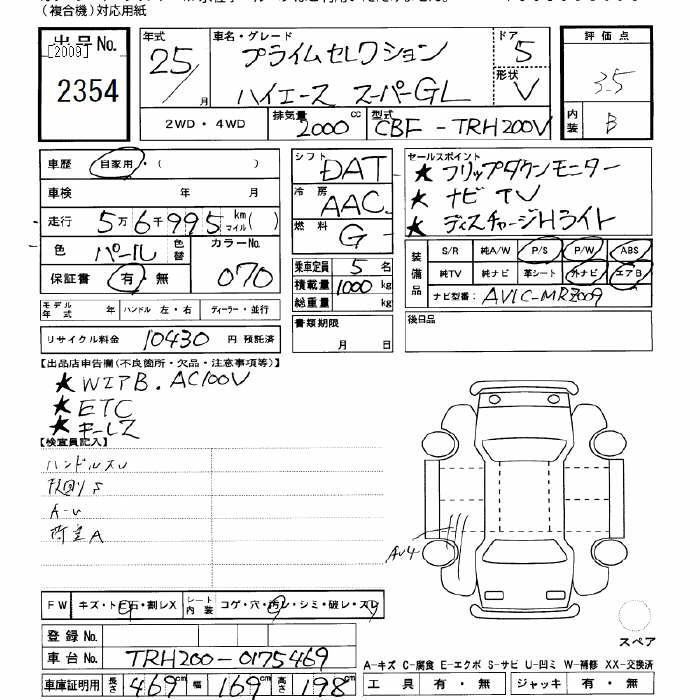 （複合機）対応用紙
出品No.
[2009]
2354
年式 25/ 月
車名・グレード プライムセレクション
ハイエース スーパーGL
ドア 5
形状 V
2WD・4WD
排気量 2000 cc
型式 CBF-TRH200V
評価点
3.5
内装 B
車歴 自家用・( )
車検 年 月
走行 5万6千995 km マイル( )
色 パール 色替
カラーNo. 070
保証書 有・無
シフト DAT
冷房 AAC
燃料 G
乗車定員 5 名
積載量 1000 kg
総重量 kg
セールスポイント
★ フリップダウンモニター
★ ナビ TV
★ ディスチャージHライト
装備品
S/R 純A/W P/S P/W ABS
純TV 純ナビ 革シート 外ナビ エアB
ナビ型番: AVIC-MRZ009
モデル年式 年 ハンドル 左・右 ディーラー・並行
リサイクル料金 10430 円 預託済
書類期限
月 日
後日品
【出品店申告欄(不良箇所・欠品・注意事項等)】
★ WエアB. AC100V
★ ETC
★ キーレス
【検査員記入】
ハンドルスレ
AU4
FW キズ・トビ石・割レX
シート内装 コゲ・穴・汚レ・シミ・破レ・スレ
スペア
登録No.
車台No. TRH200-0175469
車庫証明用 長さ 469 cm 幅 169 cm 高さ 198 cm
A-キズ C-腐食 E-エクボ S-サビ U-凹ミ W-補修 XX-交換済
工具 有・無 ジャッキ 有・無